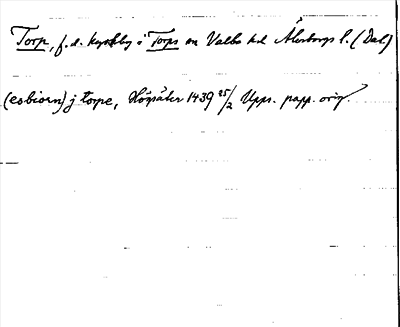 Torp, f. d. kyrkby i Torps sn Valbo hd Älvsborgs l. (Dal)
(esbiorn) j torpe, Högsäter 1439 25/2 Upps. papp. orig.